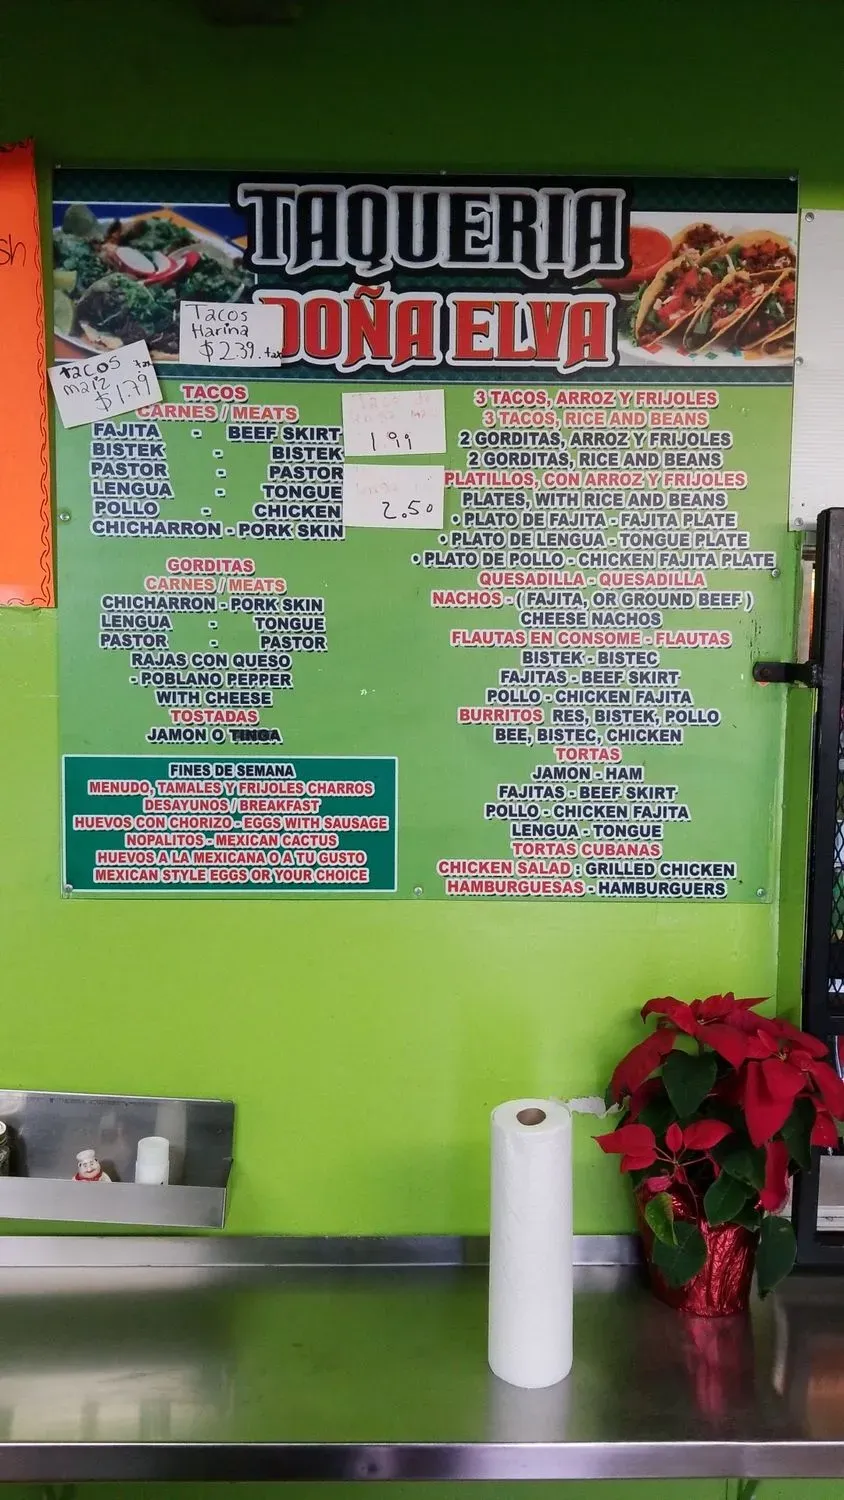 sh
TAQUERIA
DOÑA ELVA
Tacos
Harina
$2.39. tax
tacos tax
maiz
$1.79
1.99
2.50
TACOS
CARNES / MEATS
FAJITA - BEEF SKIRT
BISTEK - BISTEK
PASTOR - PASTOR
LENGUA - TONGUE
POLLO - CHICKEN
CHICHARRON - PORK SKIN
GORDITAS
CARNES / MEATS
CHICHARRON - PORK SKIN
LENGUA - TONGUE
PASTOR - PASTOR
RAJAS CON QUESO
- POBLANO PEPPER
WITH CHEESE
TOSTADAS
JAMON O TINGA
FINES DE SEMANA
MENUDO, TAMALES Y FRIJOLES CHARROS
DESAYUNOS / BREAKFAST
HUEVOS CON CHORIZO - EGGS WITH SAUSAGE
NOPALITOS - MEXICAN CACTUS
HUEVOS A LA MEXICANA O A TU GUSTO
MEXICAN STYLE EGGS OR YOUR CHOICE
3 TACOS, ARROZ Y FRIJOLES
3 TACOS, RICE AND BEANS
2 GORDITAS, ARROZ Y FRIJOLES
2 GORDITAS, RICE AND BEANS
PLATILLOS, CON ARROZ Y FRIJOLES
PLATES, WITH RICE AND BEANS
• PLATO DE FAJITA - FAJITA PLATE
• PLATO DE LENGUA - TONGUE PLATE
• PLATO DE POLLO - CHICKEN FAJITA PLATE
QUESADILLA - QUESADILLA
NACHOS - ( FAJITA, OR GROUND BEEF )
CHEESE NACHOS
FLAUTAS EN CONSOME - FLAUTAS
BISTEK - BISTEC
FAJITAS - BEEF SKIRT
POLLO - CHICKEN FAJITA
BURRITOS RES, BISTEK, POLLO
BEE, BISTEC, CHICKEN
TORTAS
JAMON - HAM
FAJITAS - BEEF SKIRT
POLLO - CHICKEN FAJITA
LENGUA - TONGUE
TORTAS CUBANAS
CHICKEN SALAD : GRILLED CHICKEN
HAMBURGUESAS - HAMBURGUERS